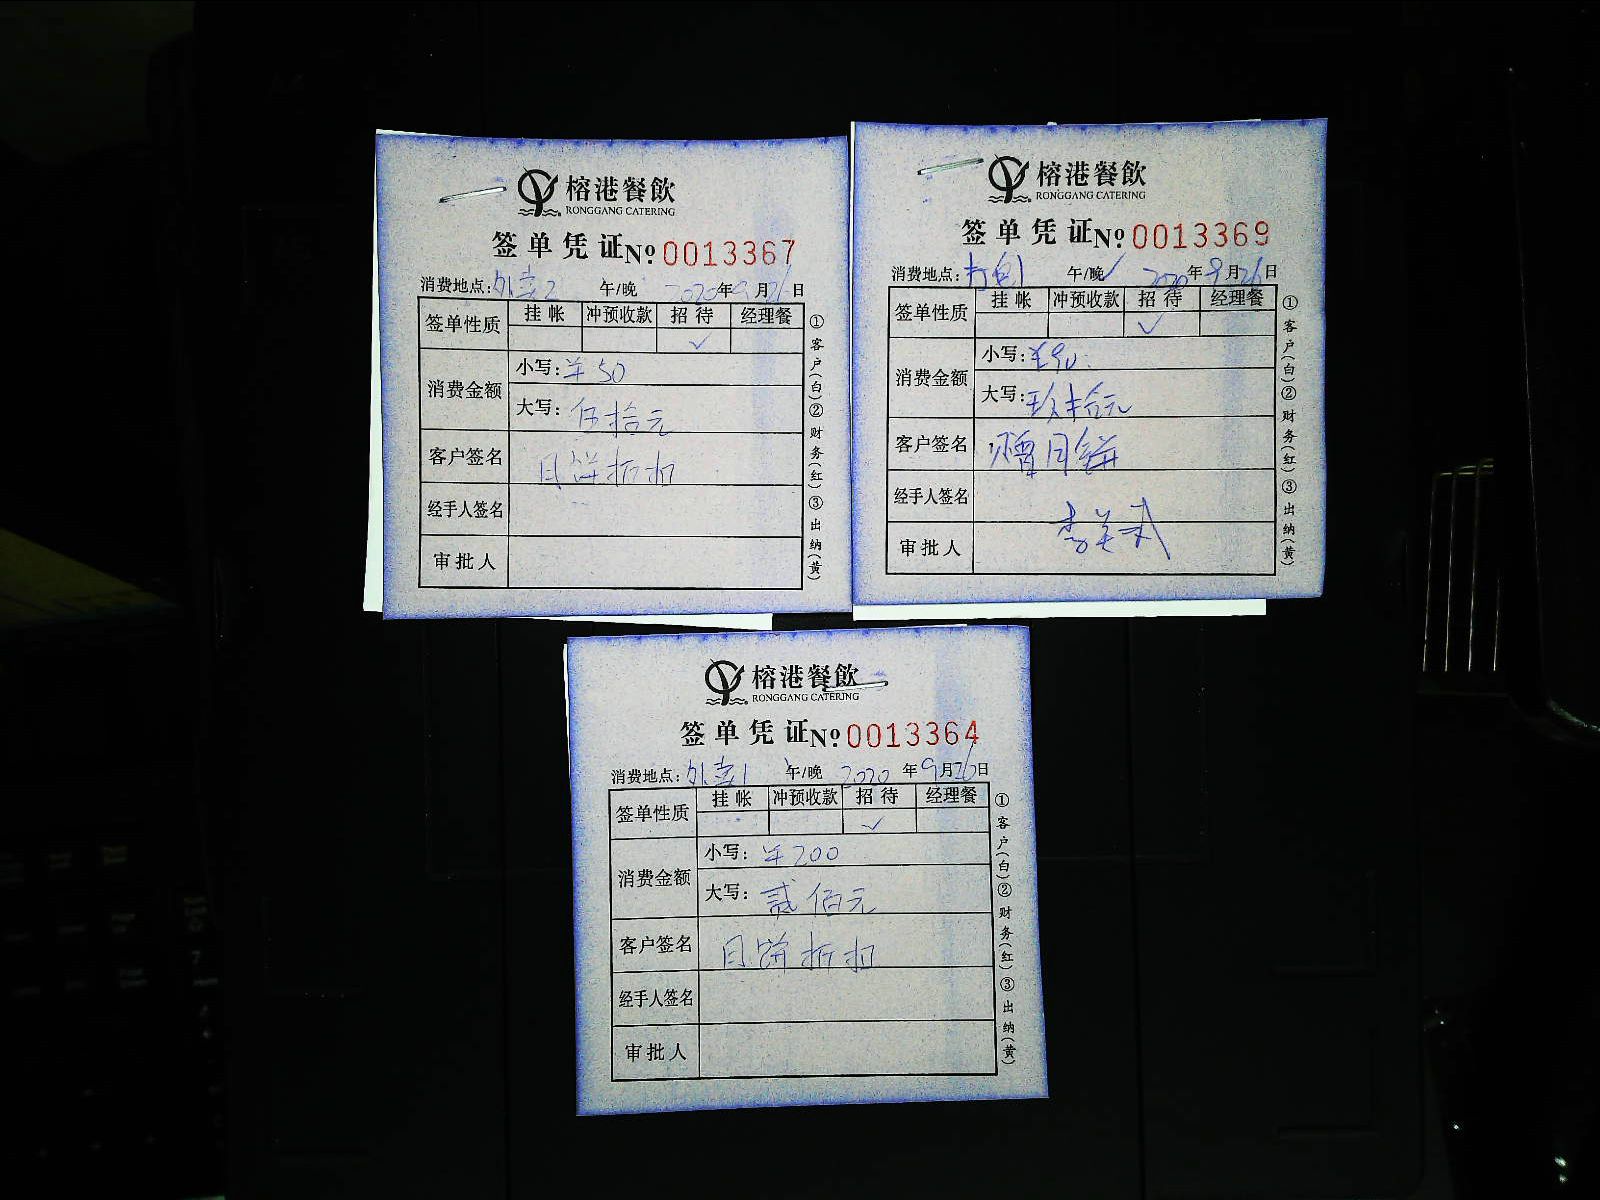 榕港餐飲
RONGGANG CATERING
签单凭证 № 0013367
消费地点: 外卖2 午/晚 2020年9月26日
签单性质 挂帐 冲预收款 招待 经理餐
✓
消费金额 小写: ¥50
大写: 伍拾元
客户签名 月饼折扣
经手人签名
审批人
①客户(白)②财务(红)③出纳(黄)
榕港餐飲
RONGGANG CATERING
签单凭证 № 0013369
消费地点: 打包1 午/晚✓ 2020年9月26日
签单性质 挂帐 冲预收款 招待 经理餐
✓
消费金额 小写: ¥90.
大写: 玖拾元
客户签名 月餅
经手人签名
审批人
①客户(白)②财务(红)③出纳(黄)
榕港餐飲
RONGGANG CATERING
签单凭证 № 0013364
消费地点: 外卖1 午/晚 2020年9月26日
签单性质 挂帐 冲预收款 招待 经理餐
✓
消费金额 小写: ¥200
大写: 贰佰元
客户签名 月饼折扣
经手人签名
审批人
①客户(白)②财务(红)③出纳(黄)